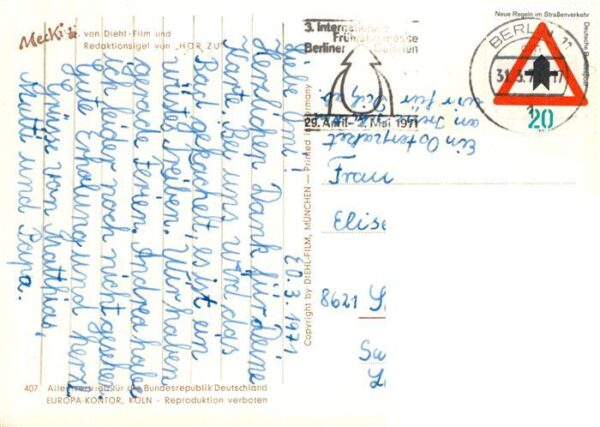 Mecki von Diehl-Film und
Redaktionsigel von „HÖR ZU"
30.3.1971
Liebe Omi!
Herzlichen Dank für Deine
Karte. Bei uns wird das
Bad gekachelt, es ist ein
wüstes treiben. Wir haben
gerade Ferien. Andrea habe
ich leider noch nicht gesehen.
Gute Erholung und herzl.
Grüsse von Matthias,
Mutti und Papa.
407 Alleinvertrieb für die Bundesrepublik Deutschland
EUROPA-KONTOR, KÖLN - Reproduktion verboten
Copyright by DIEHL-FILM, MÜNCHEN — Printed in Germany
3. Internationale
Frühjahrsmesse
Berliner Galerien
29. April - 3. Mai 1971
BERLIN 11
Neue Regeln im Straßenverkehr
Deutsche Bundespost
20
Ein Osterpaket
wir für Dich
Frau
Elise
8621